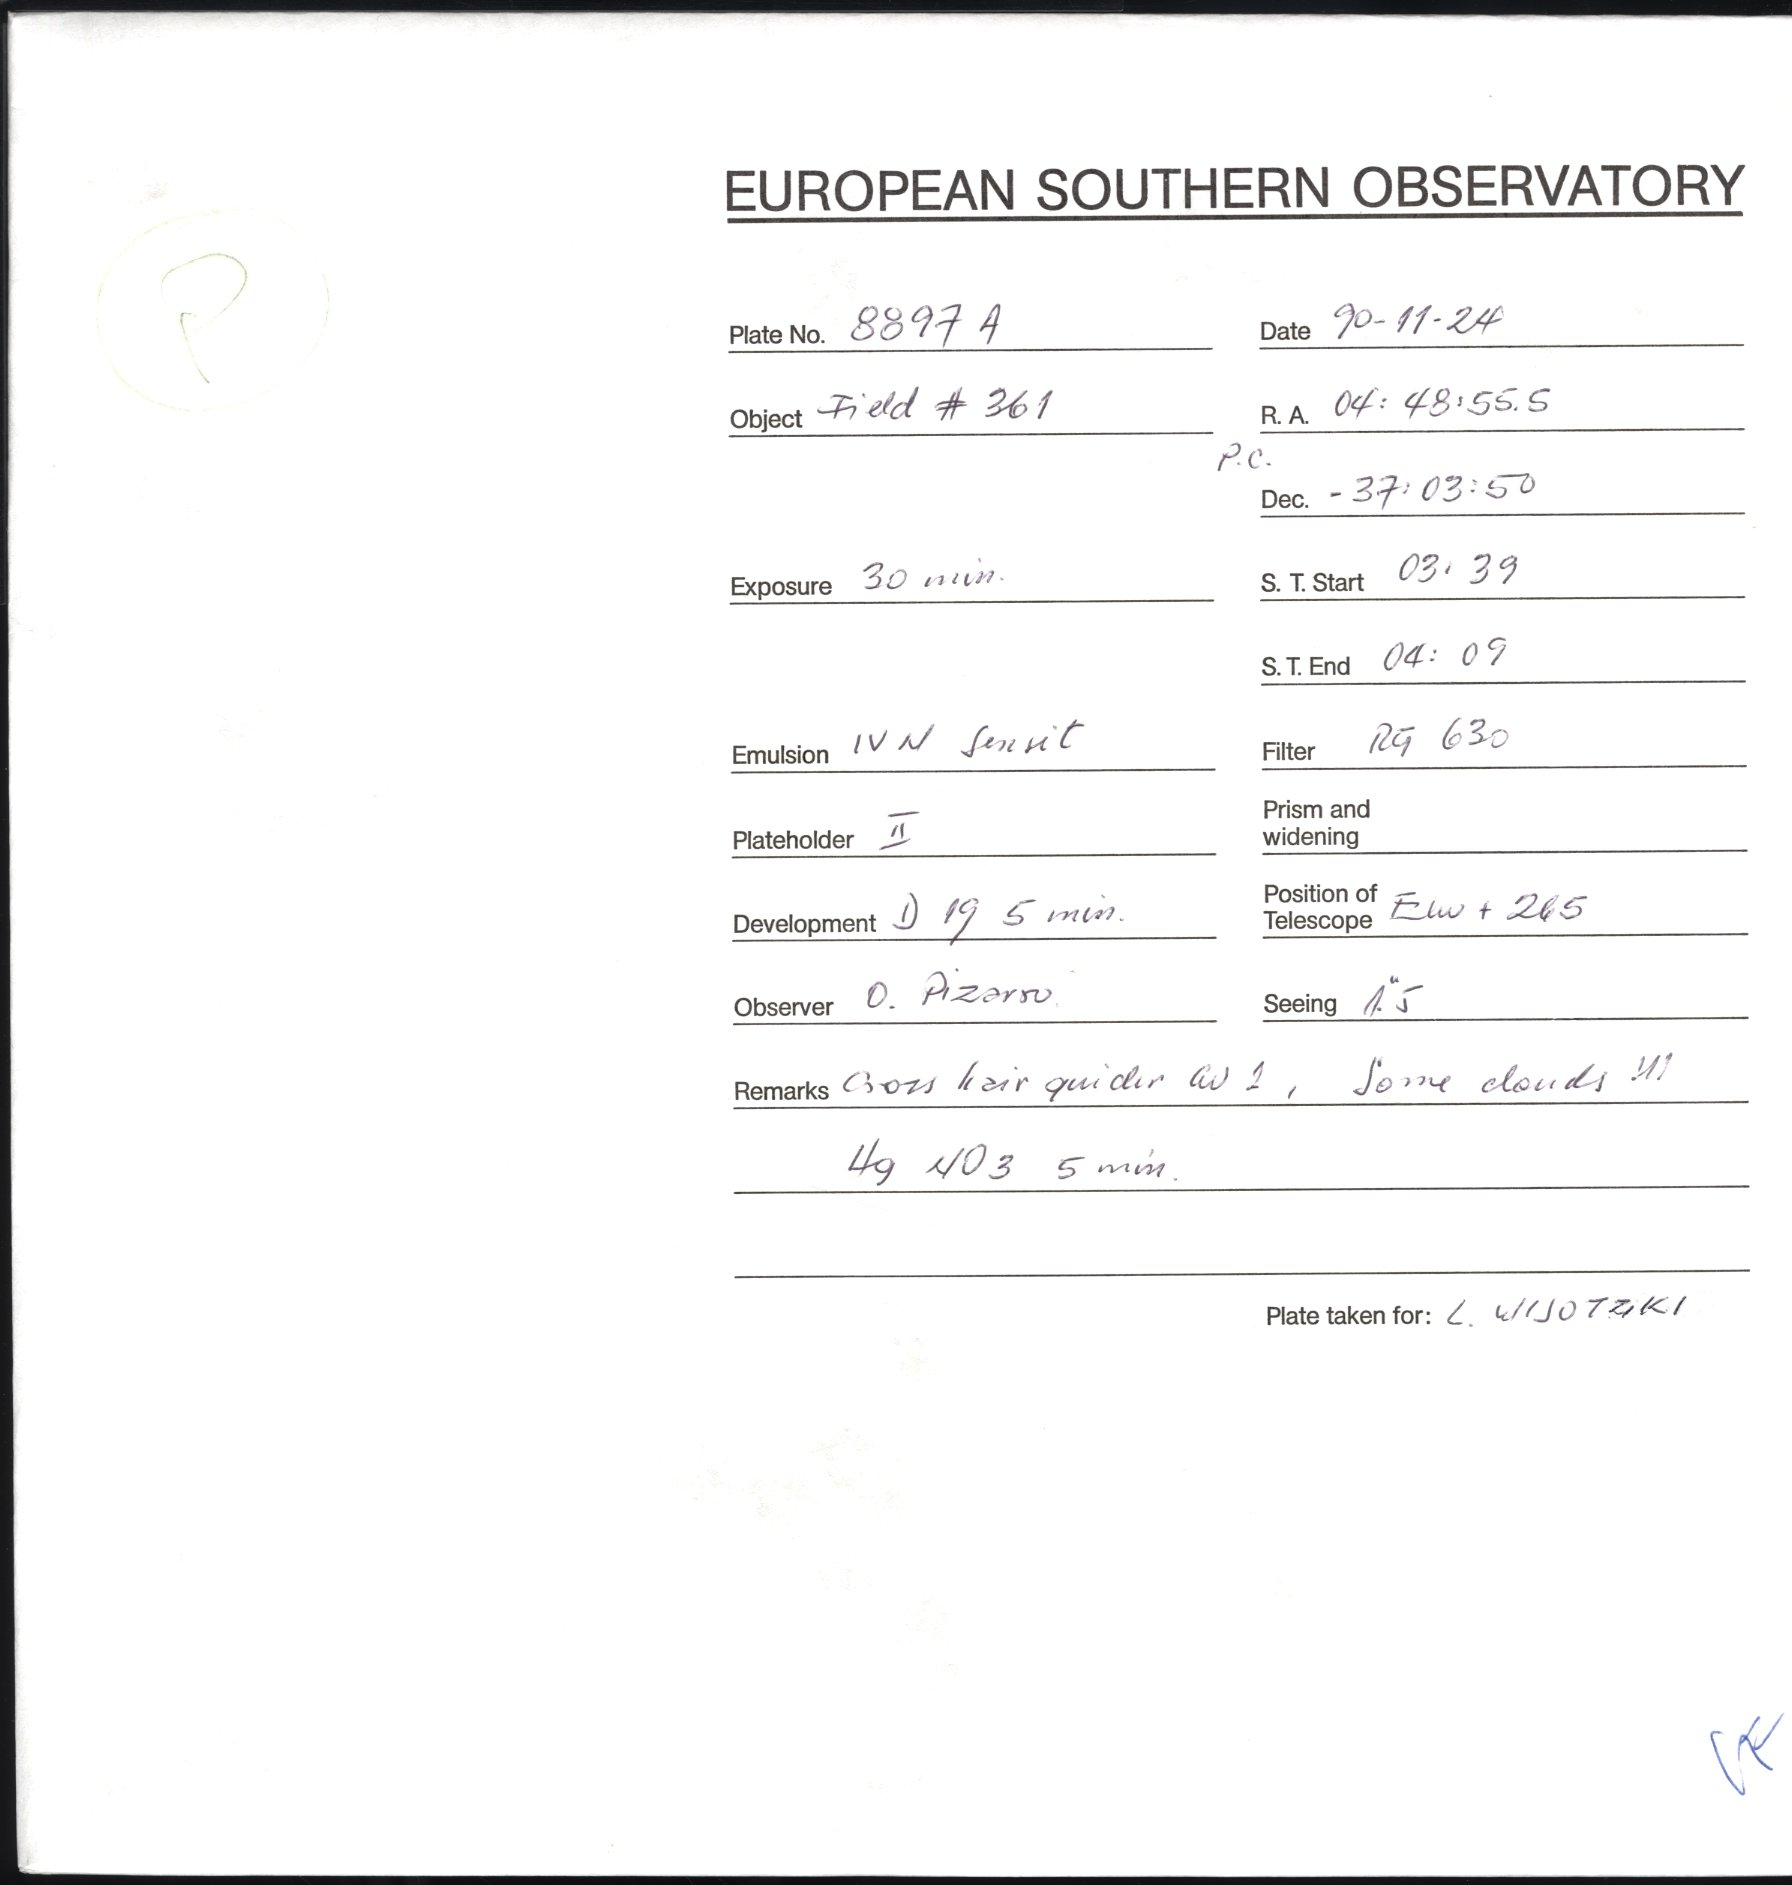 EUROPEAN SOUTHERN OBSERVATORY
P
Plate No. 8897 A Date 90-11-24
Object Field # 361 R. A. 04: 48:55.5
P.C.
Dec. - 37: 03:50
Exposure 30 min. S. T. Start 03: 39
S. T. End 04: 09
Emulsion IV N Sensit Filter RG 630
Plateholder II Prism and
widening
Development D 19 5 min. Position of
Telescope EW + 265
Observer O. Pizarro Seeing 1."5
Remarks Cross hair guider 1, Some clouds !!!
NO3 5 min.
Plate taken for: L. WISOTZKI